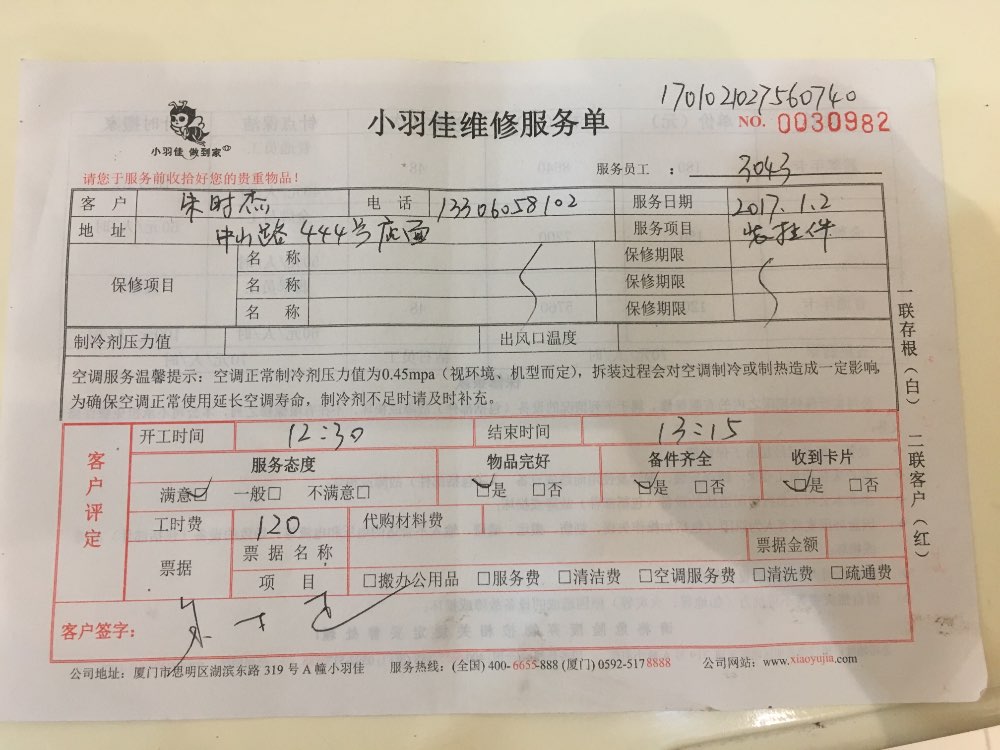 170102102756​0740
小羽佳维修服务单
NO. 0030982
小羽佳 做到家
服务员工 : 3043
请您于服务前收拾好您的贵重物品!
客 户 朱时杰 电 话 13306058102 服务日期 2017.1.2
地 址 中山路444号店面 服务项目 装挂件
保修项目 名 称 保修期限
名 称 保修期限
名 称 保修期限
制冷剂压力值 出风口温度
空调服务温馨提示：空调正常制冷剂压力值为0.45mpa（视环境、机型而定），拆装过程会对空调制冷或制热造成一定影响，
为确保空调正常使用延长空调寿命，制冷剂不足时请及时补充。
客户评定
开工时间 12:30 结束时间 13:15
服务态度 物品完好 备件齐全 收到卡片
满意☑ 一般□ 不满意□ ☑是 □否 ☑是 □否 ☑是 □否
工时费 120 代购材料费
票据 票据名称 票据金额
项 目 □搬办公用品 □服务费 □清洁费 □空调服务费 □清洗费 □疏通费
客户签字：
公司地址：厦门市思明区湖滨东路 319 号 A 幢小羽佳 服务热线：(全国) 400-6655-888 (厦门) 0592-5178888 公司网站：www.xiaoyujia.com
一联存根（白） 二联客户（红）